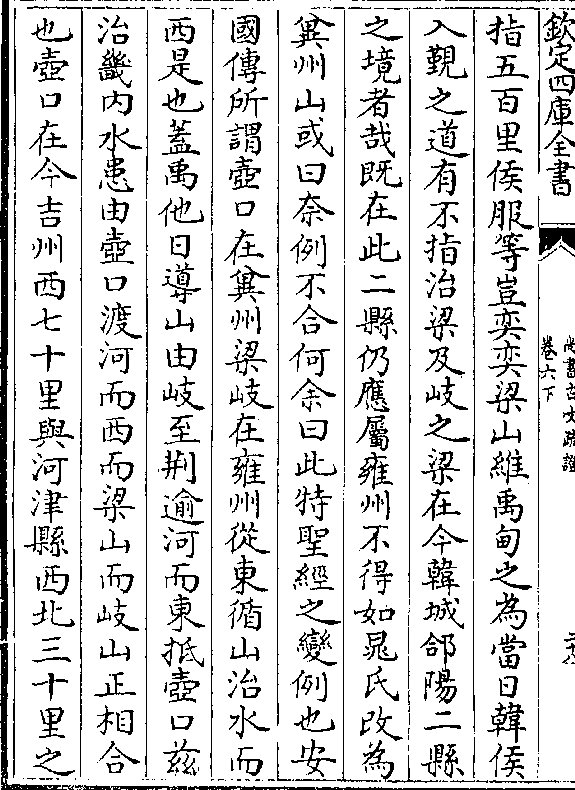 欽定四庫全書
尚書古文疏證
卷六下
指五百里侯服等豈奕奕梁山維禹甸之為當日韓侯
入覲之道有不指治梁及岐之梁在今韓城郃陽二縣
之境者哉既在此二縣仍應屬雍州不得如晁氏改為
冀州山或曰奈例不合何余曰此特聖經之變例也安
國傳所謂壺口在冀州梁岐在雍州從東循山治水而
西是也蓋禹他日導山由岐至荆逾河而東抵壺口兹
治畿内水患由壺口渡河而西而梁山而岐山正相合
也壺口在今吉州西七十里與河津縣西北三十里之